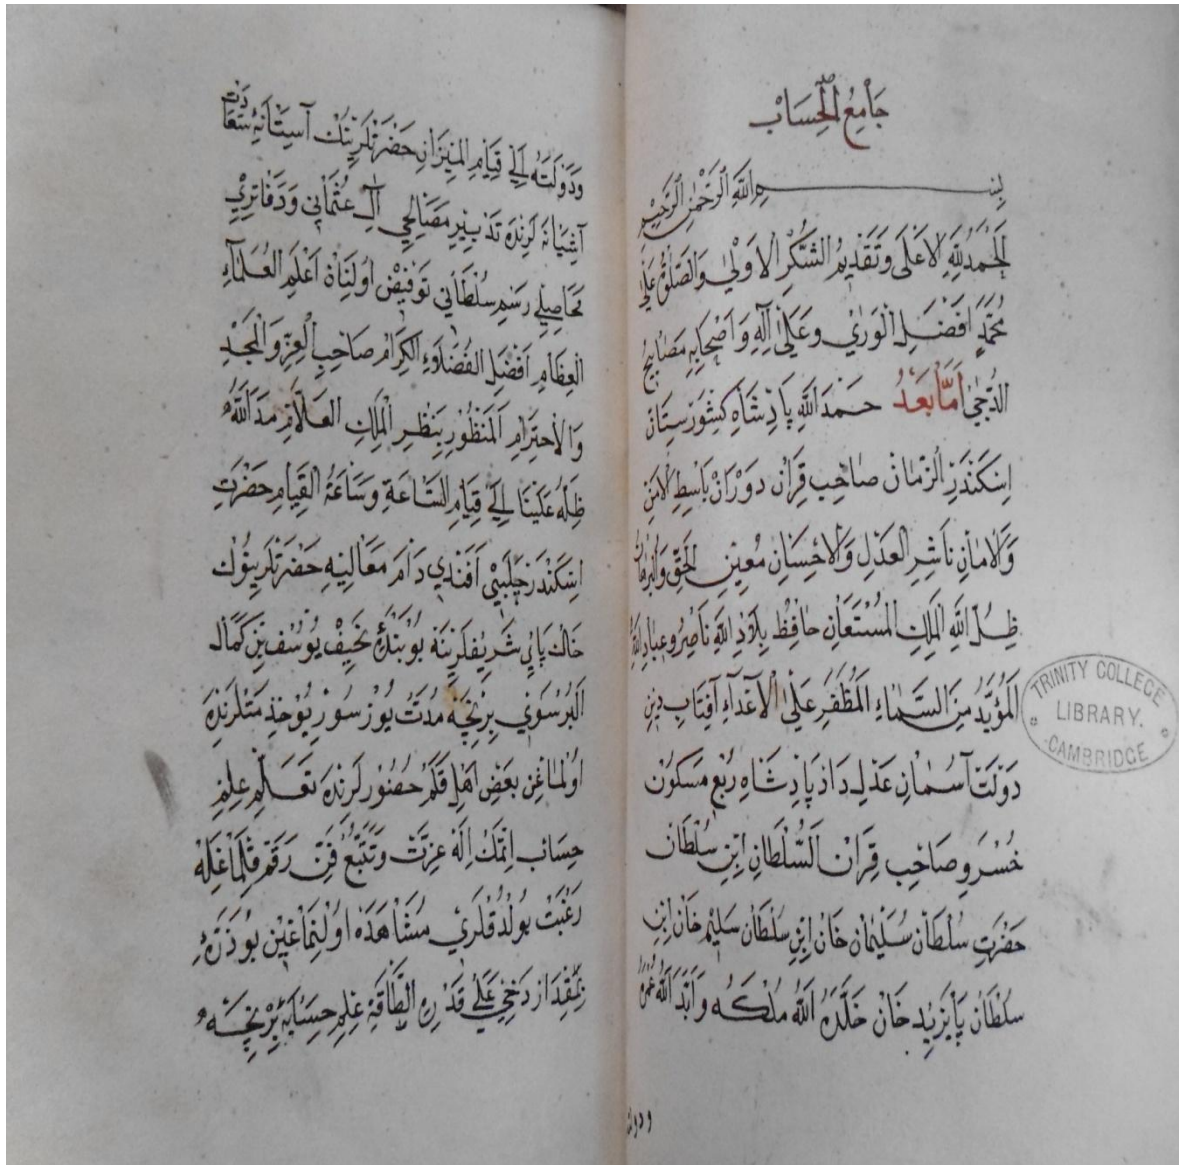 جَامِعُ الْحِسَابْ
بِسْمِ اللّٰهِ الرَّحْمٰنِ الرَّحِيمِ
اَلْحَمْدُ لِلّٰهِ الْاَعْلٰى وَتَقْدِيمُ الشُّكْرِ الْاَوْلٰى وَالصَّلٰوةُ عَلٰى
مُحَمَّدٍ اَفْضَلِ الْوَرٰي وَعَلٰى اٰلِهِ وَاَصْحَابِهِ مَصَابِيحِ
الدُّجٰي اَمَّا بَعْدُ حَمْدَ اللّٰهِ پَادِشَاهِ كِشْوَرْسِتَانْ
اِسْكَنْدَرِ الزَّمَانْ صَاحِبِ قِرَانْ دَوْرَانْ بَاسِطِ الْاَمْنِ
وَالْاَمَانِ نَاشِرِ الْعَدْلِ وَالْاِحْسَانِ مُعِينِ الْحَقِّ وَالْبُرْهَانِ
ظِلِّ اللّٰهِ الْمَلِكِ الْمُسْتَعَانِ حَافِظِ بِلَادِ اللّٰهِ نَاصِرُ وعِبَادِ اللّٰهِ
الْمُؤَيَّدُ مِنَ السَّمَاءِ الْمُظَفَّرِ عَلَى الْاَعْدَاءِ آفِتَابِ دِينِ
دَوْلَتْ آسُمَانِ عَدْلِ دَادْ پَادِشَاهِ رُبْعِ مَسْكُونْ
خُسْرَوِ صَاحِبِ قِرَانْ اَلسُّلْطَانِ اِبْنِ سُلْطَانْ
حَضْرَتِ سُلْطَانْ سُلَيْمَانْ خَانْ اِبْنِ سُلْطَانْ سَلِيمْ خَانْ اِبْنِ
سُلْطَانْ بَايَزِيدْ خَانْ خَلَّدَ اللّٰهُ مُلْكَهُ وَاَبَّدَ اللّٰهُ عُمْرَهُ
ودولته
وَدَوْلَتَهُ اِلٰي قِيَامِ الْمِيزَانِ حَضْرَتْلَرِينُكْ آسِتَانَهِٔ سَعَادَتْ
آشِيَانَه لَرِنْدَه تَدْبِيرِ مَصَالِحِي آلِ عُثْمَانِي وَدَفَاتِرِي
مَحَاصِيلِي رَسْمِ سُلْطَانِي تَفْوِيضْ اُولُنَانْ اَعْلَمِ الْعُلَمَاءِ
الْعِظَامِ اَفْضَلِ الْفُضَلَاءِ الْكِرَامْ صَاحِبِ الْعِزِّ وَالْمَجْدِ
وَالْاِحْتِرَامِ الْمَنْظُورْ بِنَظْرِ الْمَلِكِ الْعَلَّامْ مَدَّ اللّٰهُ
ظِلَّهُ عَلَيْنَا اِلٰي قِيَامِ السَّاعَةِ وَسَاعَةِ الْقِيَامِ حَضْرَتِ
اِسْكَنْدَرْ چَلَبِي اَفَنْدِي دَامَ مَعَالِيهِ حَضْرَتْلَرِينُوكْ
خَاكْ پَايِ شَرِيفْلَرِينَه بُو بَنْدَهِٔ نَحِيفْ يُوسُفْ بِنْ كَمَالْ
اَلْبُرْسَوِي بِرْنِچَه مُدَّتْ يُوزْ سُورِيُوخِذْمَتْلَرِنْدَه
اُولْمَاغِنْ بَعْضِ اَهْلِ قَلَمْ حُضُورْلَرِنْدَه تَعَلُّمِ عِلْمِ
حِسَابْ اِتْمَكْ اِلَه عِزَّتْ وَتَتَبُّعِ فَنِّ رَقَمْ قِلْمَاغْلَه
رَغْبَتْ بُولْدُقْلَرِي مُشَاهَدَه اُولُنْمَاغِينْ بُو ذَرَّهِٔ
بِمِقْدَارْ دَخِي عَلٰي قَدْرِ الطَّاقَةِ عِلْمِ حِسَابَه بِرْنِچَه
TRINITY COLLEGE
LIBRARY.
CAMBRIDGE